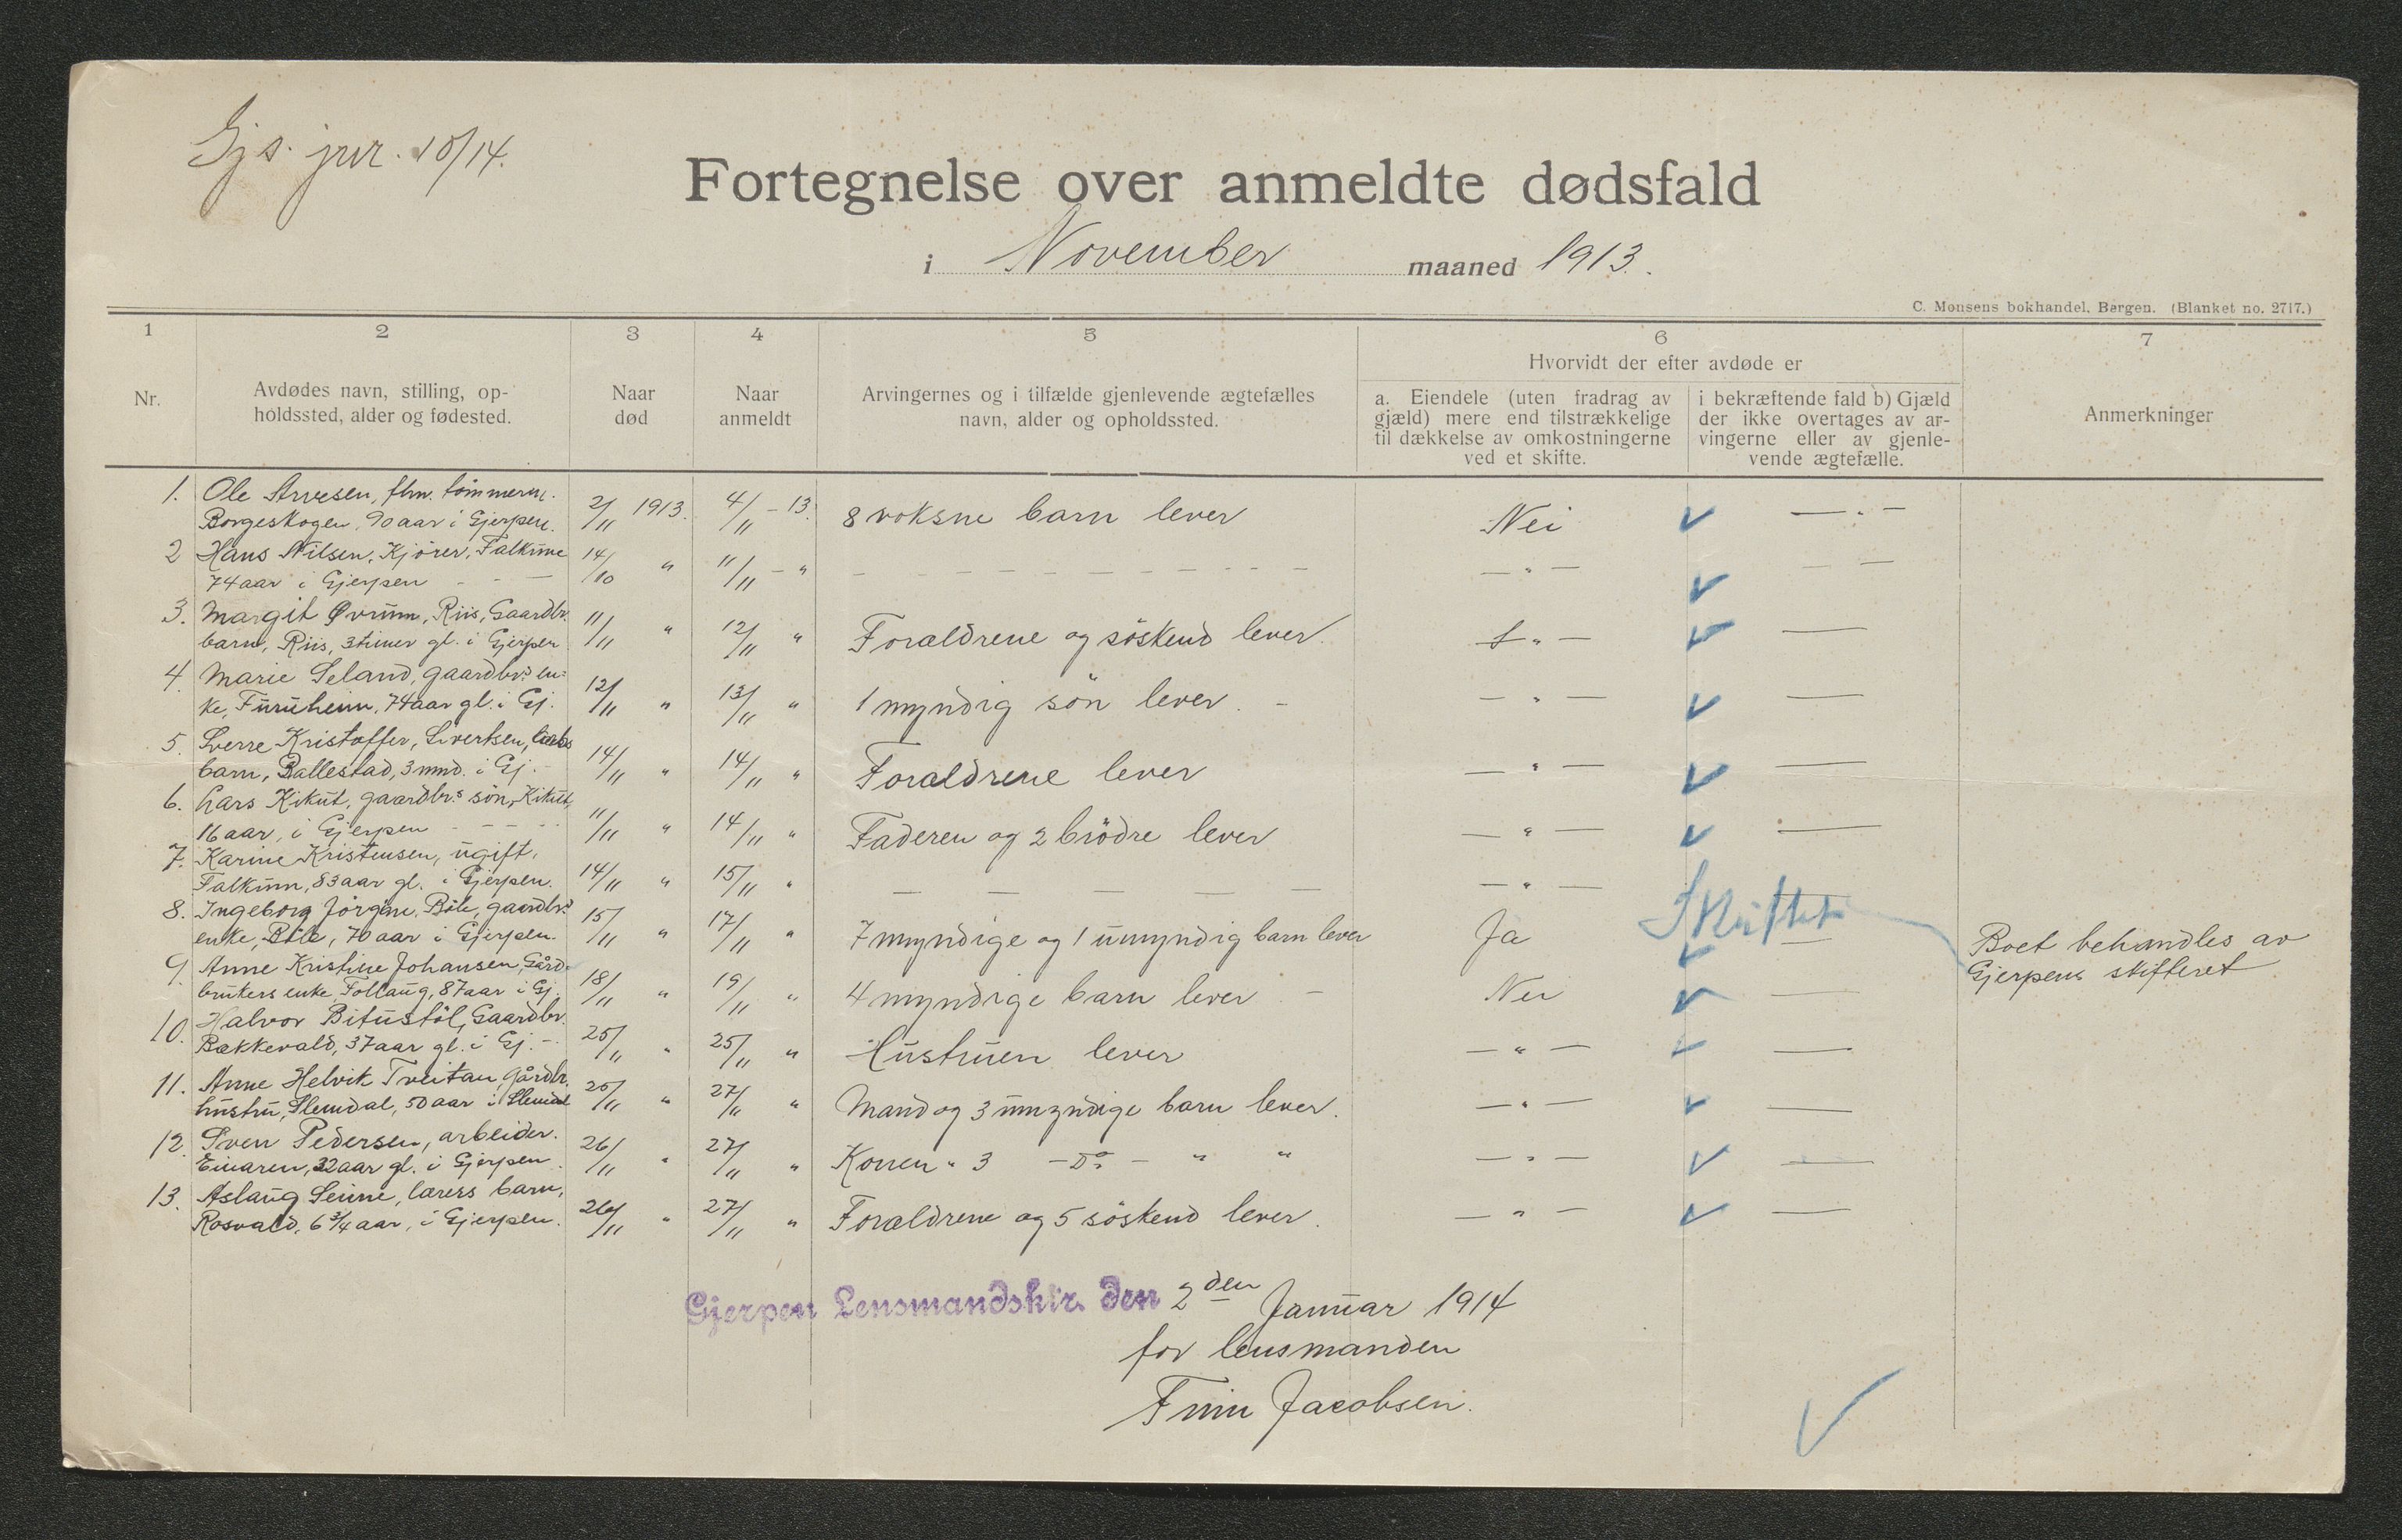 Gjs. jnr. 10/14.
Fortegnelse over anmeldte dødsfald
i November maaned 1913.
C. Monsens bokhandel, Bergen. (Blanket no. 2717.)
1 2 3 4 5 6 7
Hvorvidt der efter avdøde er
Nr.
Avdødes navn, stilling, op-
holdssted, alder og fødested.
Naar
død
Naar
anmeldt
Arvingernes og i tilfælde gjenlevende ægtefælles
navn, alder og opholdssted.
a. Eiendele (uten fradrag av
gjæld) mere end tilstrækkelige
til dækkelse av omkostningerne
ved et skifte.
i bekræftende fald b) Gjæld
der ikke overtages av ar-
vingerne eller av gjenle-
vende ægtefælle.
Anmerkninger
1. Ole Arvesen, fhv. tømmerm.
Borgeskogen, 90 aar i Gjerpen. 2/11 1913. 4/11 - 13. 8 voksne barn lever Nei — " —
2 Hans Nilsen, Kjörer, Falkum
74 aar i Gjerpen - - — 14/10 " 11/11 - " - - - - - - - - - — " — — —
3. Margit Øvrum, Riis, Gaardbr.
barn, Riis, 3 timer gl. i Gjerpen 11/11 " 12/11 " Forældrene og söskend lever. — " — —
4. Marie Seland, gaardbr.s en-
ke, Furuheim, 74 aar gl. i Gj. 12/11 " 13/11 " 1 myndig sön lever. - — " — —
5. Sverre Kristoffer, Sivertsen,
barn, Ballestad, 3 mnd. i Gj. - 14/11 " 14/11 " Forældrene lever — " — —
6. Lars Kikut, gaardbr.s sön, Kikut,
16 aar, i Gjerpen - - - - 11/11 " 14/11 " Faderen og 2 brödre lever — " — —
7. Karine Kristensen, ugift,
Falkum, 83 aar gl. i Gjerpen. 14/11 " 15/11 " — — — — — — " —
Skiftet
8. Ingeborg Jörgine Böle, gaardbr.s
enke, Böle, 70 aar i Gjerpen. 15/11 " 17/11 " 7 myndige og 1 umyndig barn lever Ja — Boet behandles av
Gjerpens skifteret
9. Anne Kristine Johansen, Gård-
brukers enke, Follaug, 87 aar i Gj. 18/11 " 19/11 " 4 myndige barn lever - Nei —
10. Halvor Bitustöl, Gaardbr.
Bakkevald, 37 aar gl. i Gj. - 25/11 " 25/11 " Hustruen lever — " — —
11. Anne Helvik Treitan, gårdbr.
hustru, Slemdal, 50 aar i Slemdal 25/11 " 27/11 " Mand og 3 umyndige barn lever. — " — —
12. Sven Pedersen, arbeider.
Einaren, 32 aar gl. i Gjerpen. 26/11 " 27/11 " Konen " 3 - Do - " " — " — —
13. Aslaug Senne, lærers barn,
Rosvald, 6 3/4 aar, i Gjerpen. 26/11 " 27/11 " Forældrene og 5 söskend lever. — " — —
Gjerpen Lensmandsktr. den 2den Januar 1914
for lensmanden
Finn Jacobsen.